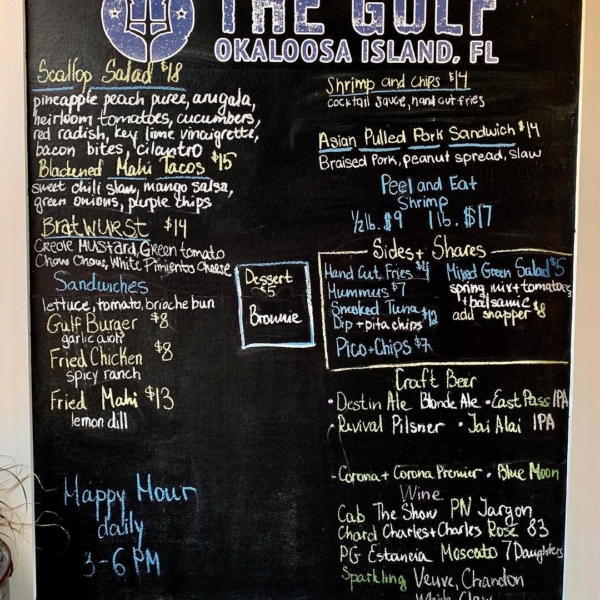 THE GULF
OKALOOSA ISLAND, FL
Scallop Salad $18
pineapple peach puree, arugala,
heirloom tomatoes, cucumbers,
red radish, key lime vinaigrette,
bacon bites, cilantro
Blackened Mahi Tacos $15
sweet chili slaw, mango salsa,
green onions, purple chips
Bratwurst $14
Creole Mustard, Green tomato
Chow Chow, White Pimiento Cheese
Sandwiches
lettuce, tomato, brioche bun
Gulf Burger $8
garlic aioli
Fried Chicken $8
spicy ranch
Fried Mahi $13
lemon dill
Happy Hour
daily
3-6 PM
Dessert
$5
Brownie
Shrimp and Chips $14
cocktail sauce, hand cut fries
Asian Pulled Pork Sandwich $14
Braised Pork, peanut spread, slaw
Peel and Eat
Shrimp
1/2 lb. $9 1 lb. $17
Sides + Shares
Hand Cut Fries $4
Hummus $7
Smoked Tuna
Dip + pita chips $12
Pico + Chips $7
Mixed Green Salad $5
spring mix + tomatoes
+ balsamic
add snapper $8
Craft Beer
• Destin Ale Blonde Ale • East Pass IPA
• Revival Pilsner • Jai Alai IPA
- Corona + Corona Premier • Blue Moon
Wine
Cab The Show PN Jargon
Chard Charles + Charles Rosé 83
PG Estancia Moscato 7 Daughters
Sparkling Veuve, Chandon
White Claw